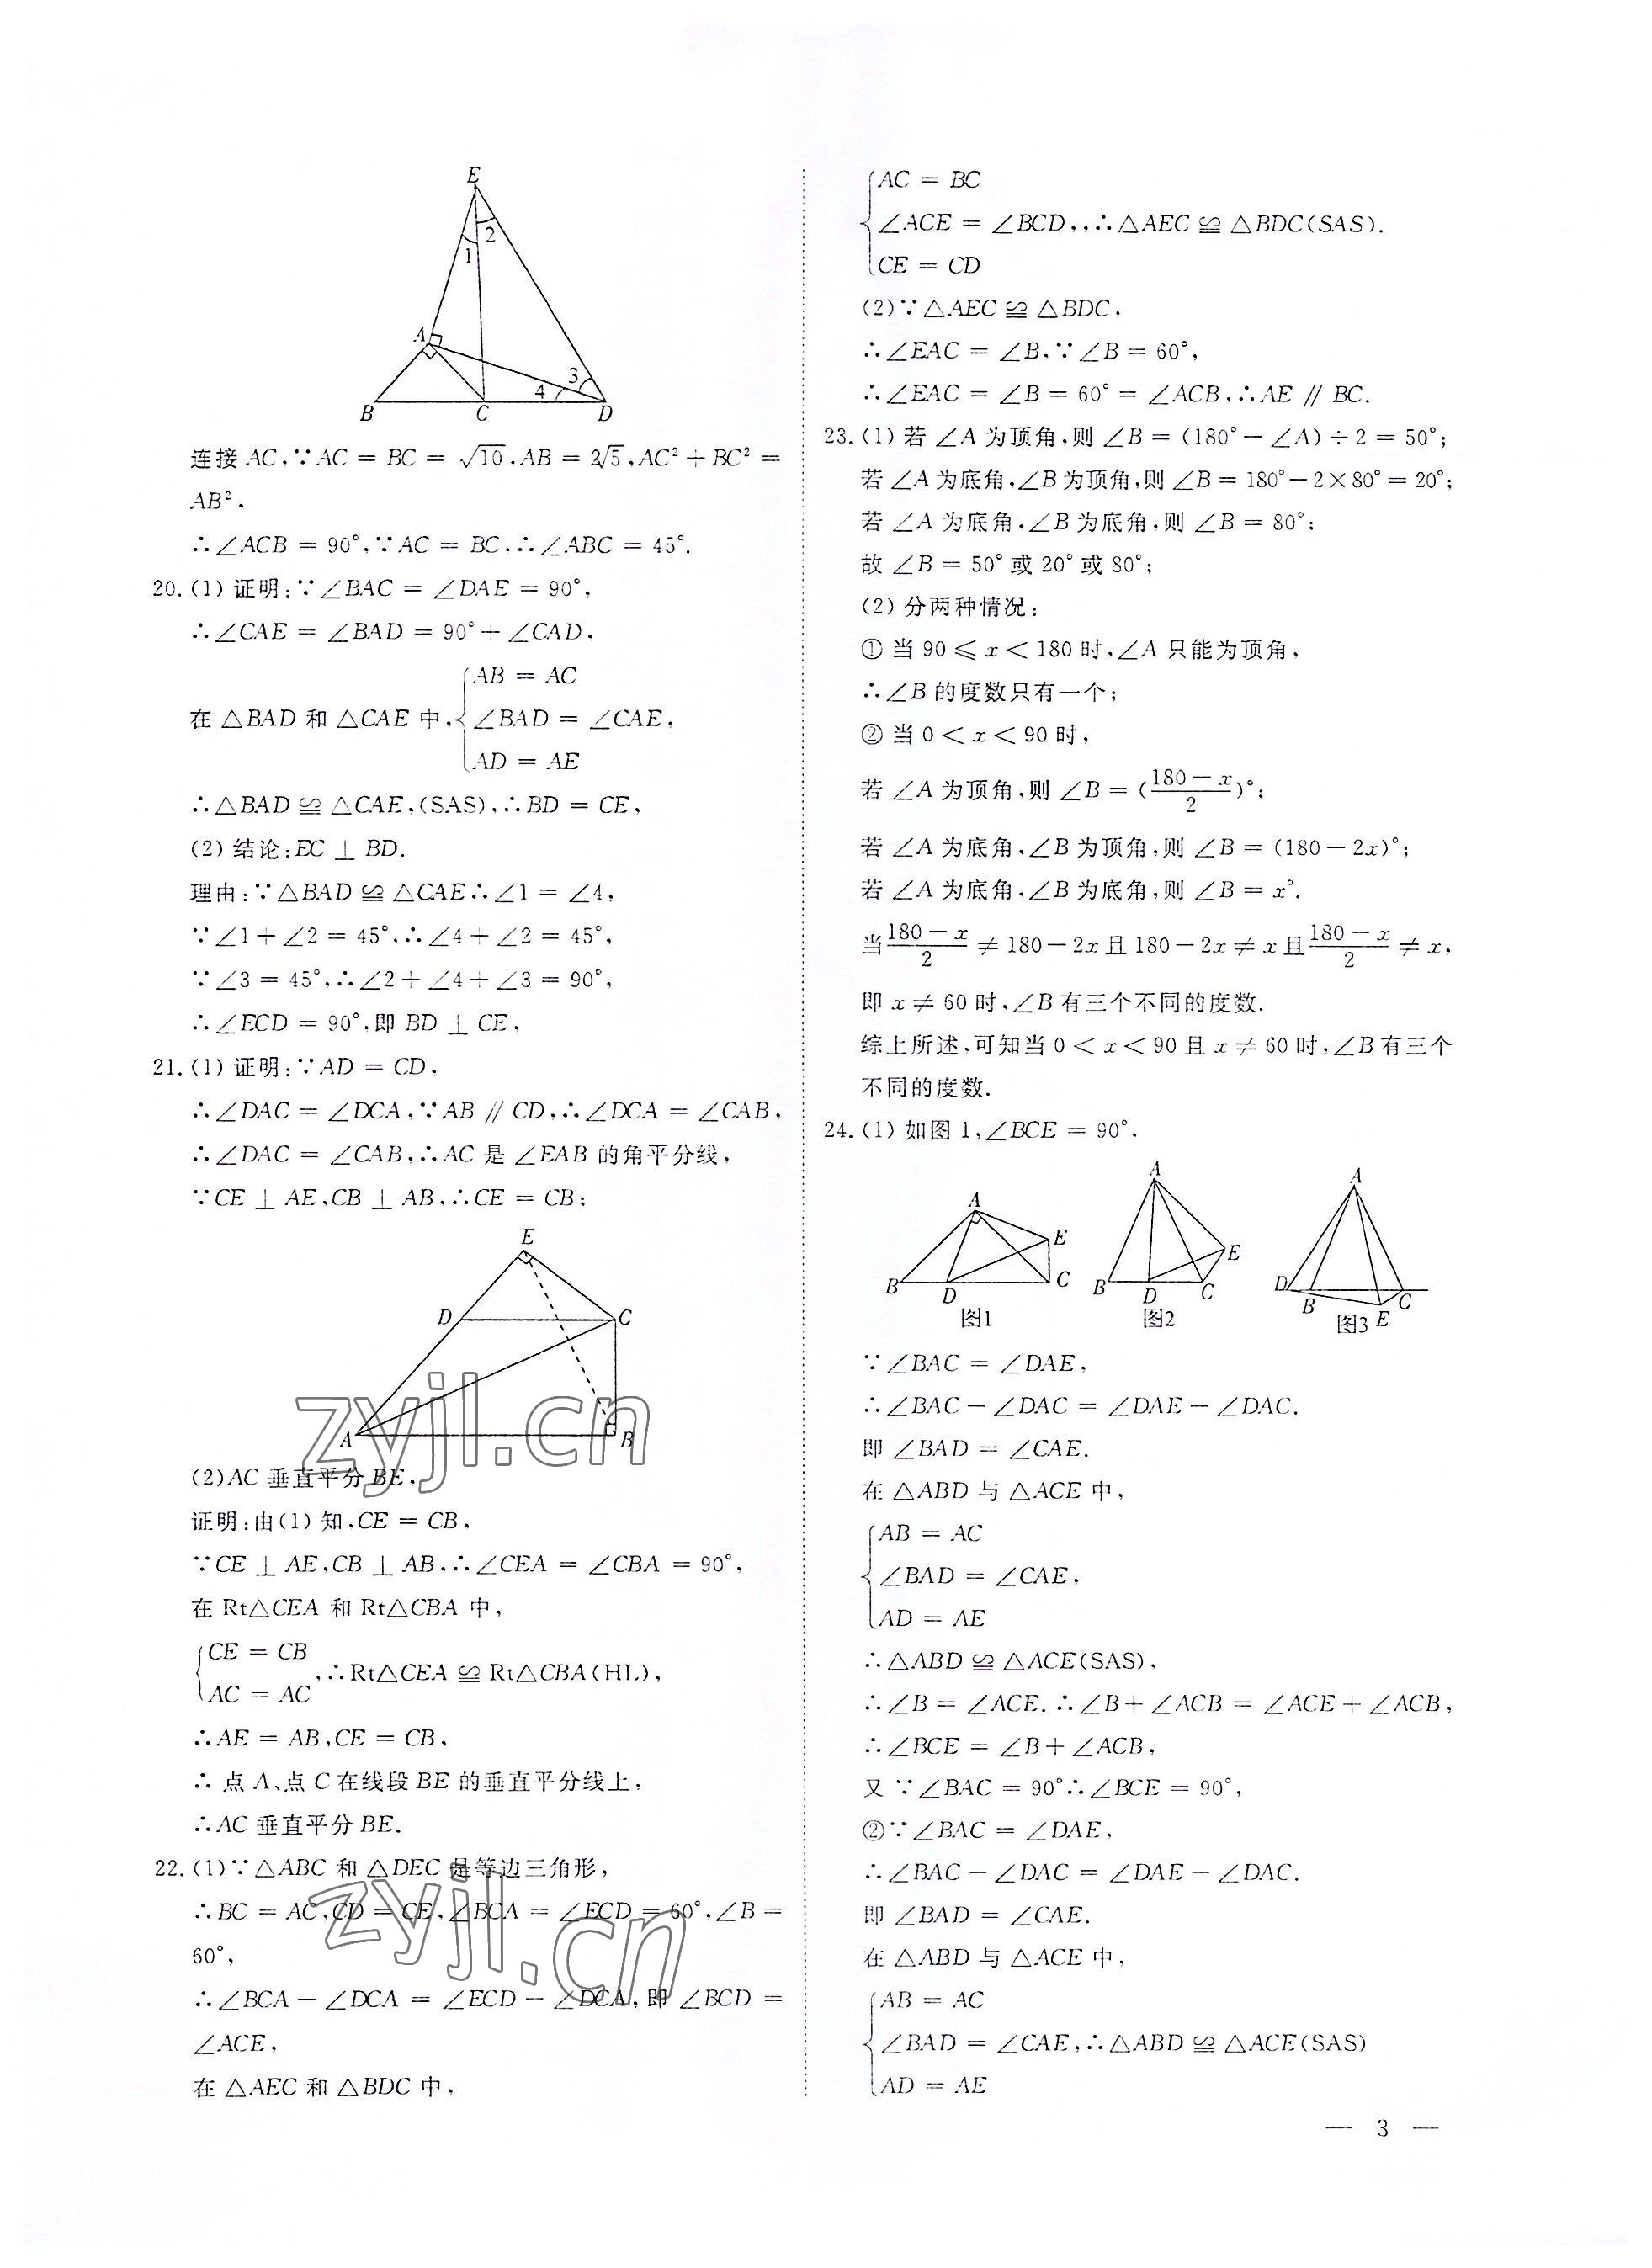 E
2
1
A
3
4
B
C
D
连接 AC,∵AC = BC = √10,AB = 2√5,AC² + BC² =
AB²,
∴∠ACB = 90°,∵AC = BC,∴∠ABC = 45°.
20.(1) 证明:∵∠BAC = ∠DAE = 90°,
∴∠CAE = ∠BAD = 90° + ∠CAD,
AB = AC
在 △BAD 和 △CAE 中,{∠BAD = ∠CAE,
AD = AE
∴△BAD ≌ △CAE,(SAS),∴BD = CE,
(2) 结论:EC ⊥ BD.
理由:∵△BAD ≌ △CAE∴∠1 = ∠4,
∵∠1 + ∠2 = 45°,∴∠4 + ∠2 = 45°,
∵∠3 = 45°,∴∠2 + ∠4 + ∠3 = 90°,
∴∠ECD = 90°,即 BD ⊥ CE,
21.(1) 证明:∵AD = CD,
∴∠DAC = ∠DCA,∵AB ∥ CD,∴∠DCA = ∠CAB,
∴∠DAC = ∠CAB,∴AC 是 ∠EAB 的角平分线,
∵CE ⊥ AE,CB ⊥ AB,∴CE = CB;
E
D
C
A
B
(2)AC 垂直平分 BE,
证明:由(1) 知,CE = CB,
∵CE ⊥ AE,CB ⊥ AB,∴∠CEA = ∠CBA = 90°,
在 Rt△CEA 和 Rt△CBA 中,
{CE = CB
AC = AC ,∴Rt△CEA ≌ Rt△CBA(HL),
∴AE = AB,CE = CB,
∴ 点 A、点 C 在线段 BE 的垂直平分线上,
∴AC 垂直平分 BE.
22.(1)∵△ABC 和 △DEC 是等边三角形,
∴BC = AC,CD = CE,∠BCA = ∠ECD = 60°,∠B =
60°,
∴∠BCA − ∠DCA = ∠ECD − ∠DCA,即 ∠BCD =
∠ACE,
在 △AEC 和 △BDC 中,
zyjl.cn
zyjl.cn
AC = BC
{∠ACE = ∠BCD,,∴△AEC ≌ △BDC(SAS).
CE = CD
(2)∵△AEC ≌ △BDC,
∴∠EAC = ∠B,∵∠B = 60°,
∴∠EAC = ∠B = 60° = ∠ACB,∴AE ∥ BC.
23.(1) 若 ∠A 为顶角,则 ∠B = (180° − ∠A) ÷ 2 = 50°;
若 ∠A 为底角,∠B 为顶角,则 ∠B = 180° − 2×80° = 20°;
若 ∠A 为底角,∠B 为底角,则 ∠B = 80°;
故 ∠B = 50° 或 20° 或 80°;
(2) 分两种情况:
① 当 90 ⩽ x < 180 时,∠A 只能为顶角,
∴∠B 的度数只有一个;
② 当 0 < x < 90 时,
若 ∠A 为顶角,则 ∠B = ((180 − x)/2)°;
若 ∠A 为底角,∠B 为顶角,则 ∠B = (180 − 2x)°;
若 ∠A 为底角,∠B 为底角,则 ∠B = x°.
当(180 − x)/2 ≠ 180 − 2x 且 180 − 2x ≠ x 且(180 − x)/2 ≠ x,
即 x ≠ 60 时,∠B 有三个不同的度数.
综上所述,可知当 0 < x < 90 且 x ≠ 60 时,∠B 有三个
不同的度数.
24.(1) 如图 1,∠BCE = 90°,
A
E
B
D
C
图1
A
E
B
D
C
图2
A
D
B
E
C
图3
∵∠BAC = ∠DAE,
∴∠BAC − ∠DAC = ∠DAE − ∠DAC.
即 ∠BAD = ∠CAE.
在 △ABD 与 △ACE 中,
AB = AC
{∠BAD = ∠CAE,
AD = AE
∴△ABD ≌ △ACE(SAS),
∴∠B = ∠ACE. ∴∠B + ∠ACB = ∠ACE + ∠ACB,
∴∠BCE = ∠B + ∠ACB,
又 ∵∠BAC = 90°∴∠BCE = 90°,
②∵∠BAC = ∠DAE,
∴∠BAC − ∠DAC = ∠DAE − ∠DAC.
即 ∠BAD = ∠CAE.
在 △ABD 与 △ACE 中,
AB = AC
{∠BAD = ∠CAE,∴△ABD ≌ △ACE(SAS)
AD = AE
— 3 —